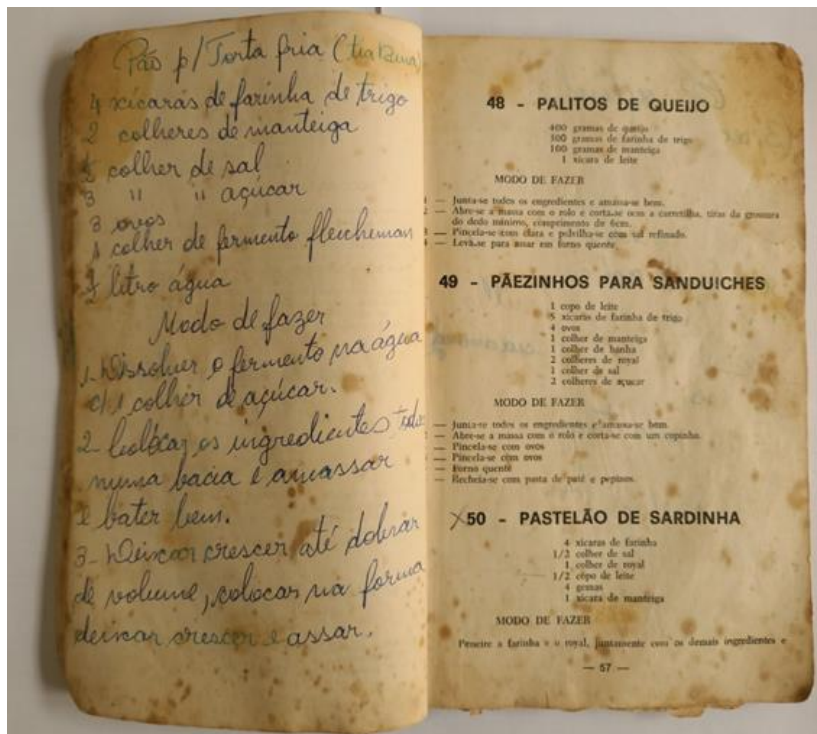 Pão p/ Torta fria (tia
4 xícaras de farinha de trigo
2 colheres de manteiga
colher de sal
3 " " açucar
3 ovos
1 colher de fermento fleischeman
litro água
Modo de fazer
1- Dissolver o fermento na água
c/ 1 colher de açúcar.
2- Colocar os ingredientes todos
numa bacia e amassar
e bater bem.
3- Deixar crescer até dobrar
de volume, colocar na forma
deixar crescer e assar.
48 - PALITOS DE QUEIJO
400 gramas de queijo
500 gramas de farinha de trigo
100 gramas de manteiga
1 xicara de leite
MODO DE FAZER
1 — Junta-se todos os engredientes e amassa-se bem.
2 — Abre-se a massa com o rolo e corta-se com a carretilha, tiras da grossura
do dedo mínimo, comprimento de 6cm.
3 — Pincela-se com clara e polvilha-se com sal refinado.
4 — Leva-se para assar em forno quente.
49 - PÃEZINHOS PARA SANDUICHES
1 copo de leite
5 xicaras de farinha de trigo
4 ovos
1 colher de manteiga
1 colher de banha
2 colheres de royal
1 colher de sal
2 colheres de açucar
MODO DE FAZER
— Junta-se todos os engredientes e amassa-se bem.
— Abre-se a massa com o rolo e corta-se com um copinho.
— Pincela-se com ovos
— Pincela-se com ovos
— Forno quente
— Recheia-se com pasta de patê e pepinos.
X 50 - PASTELÃO DE SARDINHA
4 xicaras de farinha
1/2 colher de sal
1 colher de royal
1/2 copo de leite
4 gemas
1 xicara de manteiga
MODO DE FAZER
Peneire a farinha e o royal, juntamente com os demais ingredientes e
— 57 —